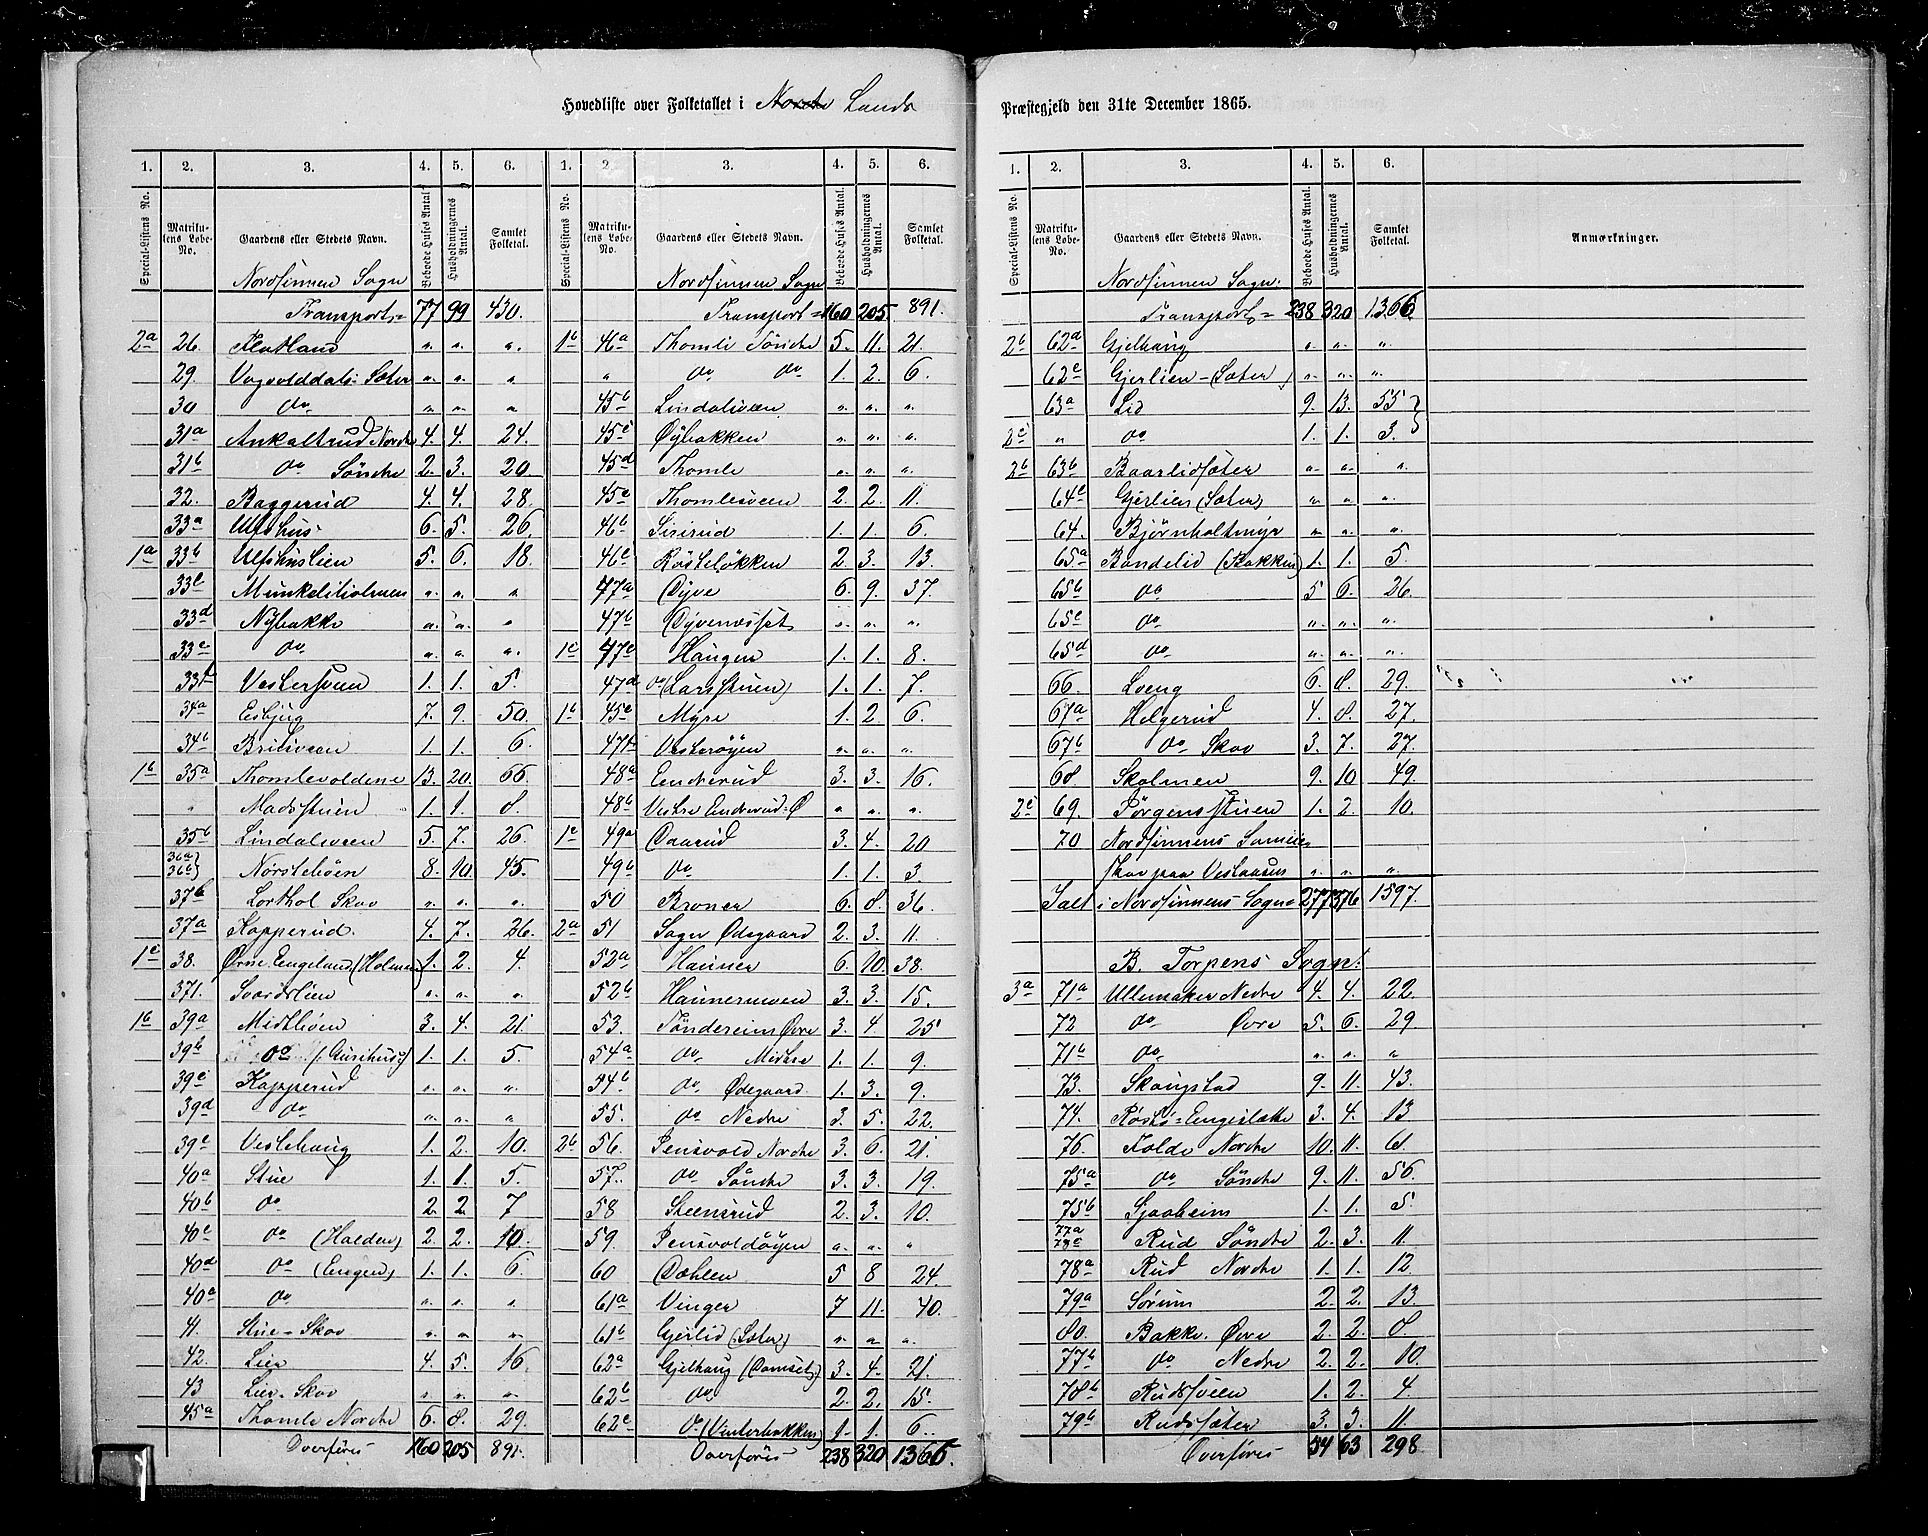 Hovedliste over Folketallet i Nordre Lands
Præstegjeld den 31te December 1865.
1. 2. 3. 4. 5. 6. 1. 2. 3. 4. 5. 6.
Special-Listens No. Matrikulens Løbe-No. Gaardens eller Stedets Navn. Beboede Huses Antal Husholdningernes Antal. Samlet Folketal. Special-Listens No. Matrikulens Løbe-No. Gaardens eller Stedets Navn. Beboede Huses Antal. Husholdningernes Antal. Samlet Folketal.
Nordsinnen Sogn
Transport = 77 99 430.
2a 26. Flatland " " "
29. Sæter " " "
30 do " " "
31a Ankaltrud Nordre 4. 4. 24.
31b do Söndre 2. 3. 20.
32. Baggerud 4. 4. 28.
33a Ulfshus 6. 5. 26.
1a 33b Ulfshuslien 5. 6. 18.
33c Munkelilolmen " " "
33d Nybakke " " "
33e do " " "
33f Vestersveen 1. 1. 5.
34a Esbjug 7. 9. 50.
34b 1. 1. 6.
1b 35a Thomlevoldene 13. 20. 66.
" Madsstuen 1. 1. 8.
35b Lindalsveen 5. 7. 26.
36a 36c Nörstehöen 8. 10. 45.
37b Skov " " "
37a Kopperud. 4. 7. 26.
1c 38. Engeland (Holmen) 1. 2. 4.
371. Svardslien " " "
1b 39a Midthöen 3. 4. 21.
39b do 1. 1. 5.
39c Kopperud " " "
39d do " " "
39e Vestehaug 1. 2. 10.
40a Stue 1. 1. 5.
40b do 2. 2. 7
40c do (Halden) 2. 2. 10.
40d do (Engen) 1. 1. 6.
40a do " " "
41. Stue-Skov " " "
42. Lien 4. 5. 16
43 Lien-Skov " " "
45a Thomle Nordre 6. 8. 29.
Overføres 160 205 891.
Nordsinnen Sogn
Transport = 160 205. 891.
1b 46a Thomli Söndre 5. 11. 21.
" do do 1. 2. 6.
45b Lindalsveen " " "
45c Øybakken " " "
45d Thomle " " "
45e Thomlesveen 2. 2. 11.
46b Sisirud 1. 1. 6.
46c Rösteløkken 2. 3. 13.
47a Dyve 6. 9. 37.
47b Dyvenæsset " " "
1c 47c Haugen 1. 1. 8.
47d do (Larsstuen) 1. 1. 7.
1b 45e Myre 1. 2. 6.
47f Vesteröyen " " "
48a Enderud 3. 3. 16.
48b Vestre Enderud Ø " " "
1c 49a Daarud 3. 4. 20
49b do 1. 1. 3
50 Bronen 6. 8. 36.
2a 51 Sogn Ødegaard 2. 3. 11.
52a Haunen 6. 10. 38.
52b 3. 3. 15.
53. Töndereim Øvre 3. 4 25
54a do Midtre 1. 1. 9.
54b do Ødegaard 1. 3. 9.
55. do Nedre 3. 5. 22.
2b 56. Jensvold Nordre 3. 6. 21.
57. do Söndre 3. 3. 19.
58 Steensrud 2. 3. 10.
59. Jensvoldöyen " " "
60 Dæhlen 5 8 24.
61a Vinger 7 11. 40.
61b Gjerlid (Sæter) " " "
62a Gjelhaug 3. 4. 21.
62b do 2. 2. 15.
62c do (Vinterbakken) 1. 1. 6.
Overføres 238 320 1366.
1. 2. 3. 4. 5. 6.
Special-Listens No. Matrikulens Løbe-No. Gaardens eller Stedets Navn. Beboede Huses Antal. Husholdningernes Antal. Samlet Folketal. Anmærkninger.
Nordsinnen Sogn.
Transport = 238 320 1366.
2b 62d Gjelhaug " " "
62e Gjerlien - (Sæter) " " "
63a Lid 9. 13. 55
2c " do 1. 1. 3.
2b 63b Baarlidsæter " " "
64c Gjerlien (Sæter) " " "
64. Björnholtmyr " " "
65a Bondelid (Bakken) 1. 1. 5.
65b do 5 6. 26.
65c do " " "
65d do " " "
66. Loeng 6. 8. 29.
67a Helgerud 4. 8. 27.
67b do Skov 3. 7. 27.
68. Skolmen 9. 10 49.
2c 69. Jörgensstuen 1. 2. 10.
70 Nordsinnens Sameie
Skov paa Vestaasen " " "
Ialt i Nordsinnens Sogn 277 376 1597.
B. Torpens Sogn.
3a 71a Ullensaker Nedre 4. 4. 22.
72 do Øvre 5. 6. 29
71b do " " "
73. Skougstad 9. 11. 43.
74. Røste-Engeslætte 3. 4. 13
76. Folde Nordre 10. 11. 61.
75a do Söndre 9. 11. 56.
75b Sjaaheim 1. 1. 5.
77a 78c Rud Söndre 2. 3. 11.
78a Rud Nordre 1. 1. 12.
79a Sörum 2. 2. 13.
80. Bakke Øvre 2. 2. 8.
77b do Nedre 2. 2. 10.
78b Rudsveen 1. 2. 4
79b Rudssæter 3. 3. 11.
Overføres 54 63 298